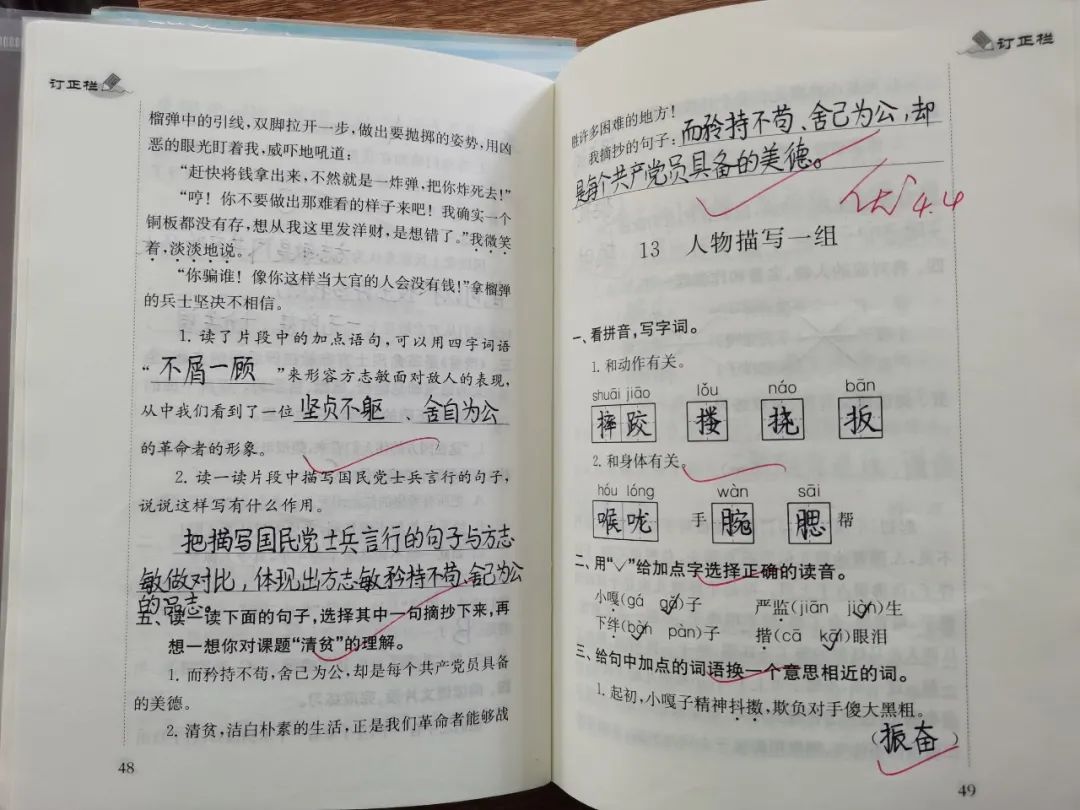 订正栏
榴弹中的引线，双脚拉开一步，做出要抛掷的姿势，用凶
恶的眼光盯着我，威吓地吼道：
“赶快将钱拿出来，不然就是一炸弹，把你炸死去！”
“哼！你不要做出那难看的样子来吧！我确实一个
铜板都没有存，想从我这里发洋财，是想错了。”我微笑
着，淡淡地说。
“你骗谁！像你这样当大官的人会没有钱！”拿榴弹
的兵士坚决不相信。
1. 读了片段中的加点语句，可以用四字词语
“ 不屑一顾 ”来形容方志敏面对敌人的表现，
从中我们看到了一位 坚贞不躯、舍自为公
的革命者的形象。
2. 读一读片段中描写国民党士兵言行的句子，
说说这样写有什么作用。
把描写国民党士兵言行的句子与方志
敏做对比，体现出方志敏矜持不苟、舍己为公
的品志。
五、读一读下面的句子，选择其中一句摘抄下来，再
想一想你对课题“清贫”的理解。
1. 而矜持不苟，舍己为公，却是每个共产党员具备
的美德。
2. 清贫，洁白朴素的生活，正是我们革命者能够战
48
订正栏
胜许多困难的地方！
我摘抄的句子：而矜持不苟、舍己为公，却
是每个共产党员具备的美德。
优 4.4
13 人物描写一组
一、看拼音，写字词。
1. 和动作有关。
shuāi jiāo lǒu náo bān
摔跤 搂 挠 扳
2. 和身体有关。
hóu lóng wàn sāi
喉咙 手腕 腮帮
二、用“✓”给加点字选择正确的读音。
小嘎(gá gǎ)子 严监(jiān jiàn)生
下绊(bàn pàn)子 揩(cā kāi)眼泪
三、给句中加点的词语换一个意思相近的词。
1. 起初，小嘎子精神抖擞，欺负对手傻大黑粗。
（振奋）
49